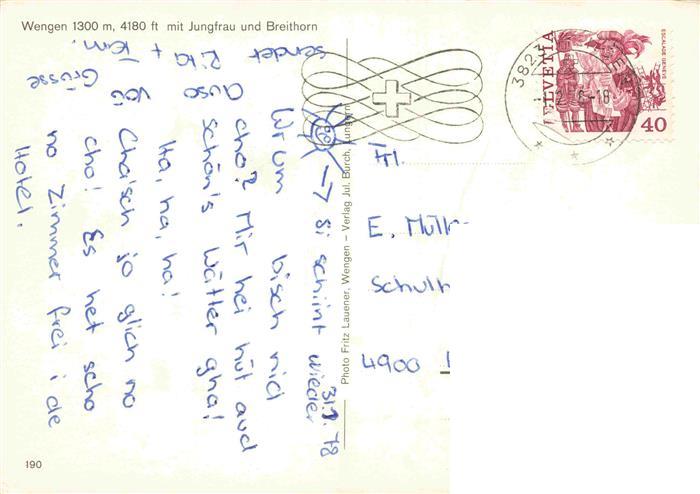 Wengen 1300 m, 4180 ft mit Jungfrau und Breithorn
31.7.78
→ Si schiint wieder
Wrum bisch nid
cho? Mir hei hüt aud
schön's Wätter gha!
Ha, ha, ha!
Cha'sch jo glich no
cho! Es het scho
no Zimmer frei i de
Hotel.
Grüsse
vo
sendet Rita + Fam.
Photo Fritz Lauener, Wengen – Verlag Jul. Burch, Lungern
HELVETIA
ESCALADE GENEVE
40
3823
-18
Frl.
E. Müll
Schulh
4900
190